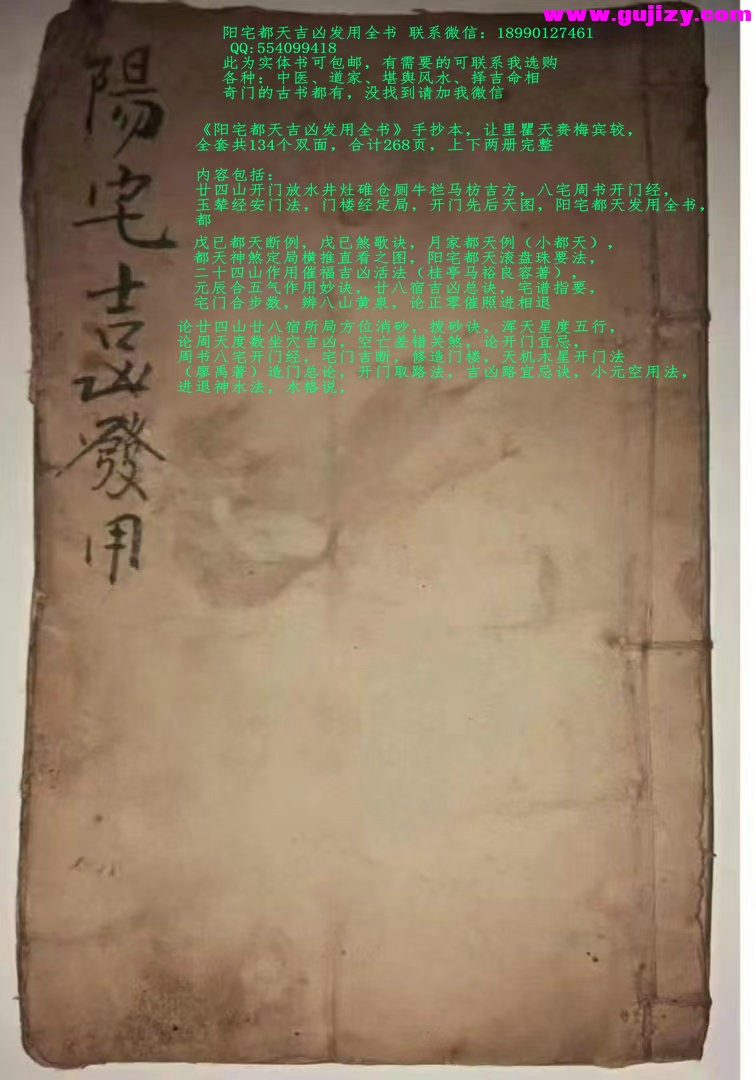 www.gujizy.com
阳宅都天吉凶发用全书 联系微信：18990127461
QQ:554099418
此为实体书可包邮，有需要的可联系我选购
各种：中医、道家、堪舆风水、择吉命相
奇门的古书都有，没找到请加我微信
《阳宅都天吉凶发用全书》手抄本，让里瞿天赉梅宾较，
全套共134个双面，合计268页，上下两册完整
内容包括：
廿四山开门放水井灶碓仓厕牛栏马枋吉方，八宅周书开门经，
玉辇经安门法，门楼经定局，开门先后天图，阳宅都天发用全书，
都
戊已都天断例，戊已煞歌诀，月家都天例（小都天），
都天神煞定局横推直看之图，阳宅都天滚盘珠要法，
二十四山作用催福吉凶活法（桂亭马裕良容著），
元辰合五气作用妙诀，廿八宿吉凶总诀，宅谱指要，
宅门合步数，辨八山黄泉，论正零催照进相退
论廿四山廿八宿所局方位消砂，拨砂诀，浑天星度五行，
论周天度数坐穴吉凶，空亡差错关煞，论开门宜忌，
周书八宅开门经，宅门吉断，修造门楼，天机木星开门法
（廖禹著）造门总论，开门取路法，吉凶路宜忌诀，小元空用法，
进退神水法，水格说，
陽宅吉凶發用